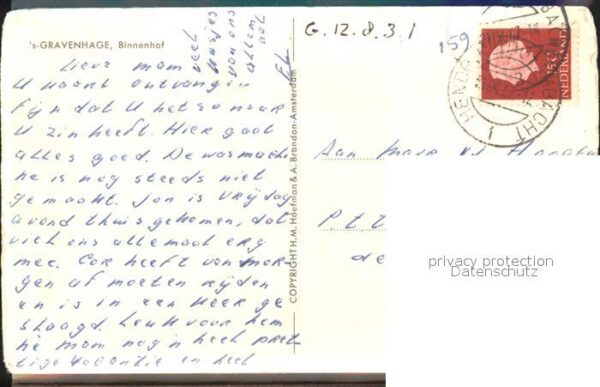 's-GRAVENHAGE, Binnenhof
Lieve mam
U kaart ontvangen
fijn dat U het zo naar
U zin heeft. Hier gaat
alles goed. De wasmachi
ne is nog steeds niet
gemaakt. Jon is vrijdag
avond thuis gekomen, dat
viel ons allemaal erg
mee. Cor heeft van mor-
gen af moeten rijden
en is in een keer ge
slaagd. Leuk voor hem
hè mam nog'n heel pret
tige vacantie en heel
veel
kusjes
van ons
allem
aal
COPYRIGHT H.M. Hoefman & A. Brandon-Amsterdam
G. 12.8.31
159
NEDERLAND
Aan
P.t.
de
privacy protection
Datenschutz